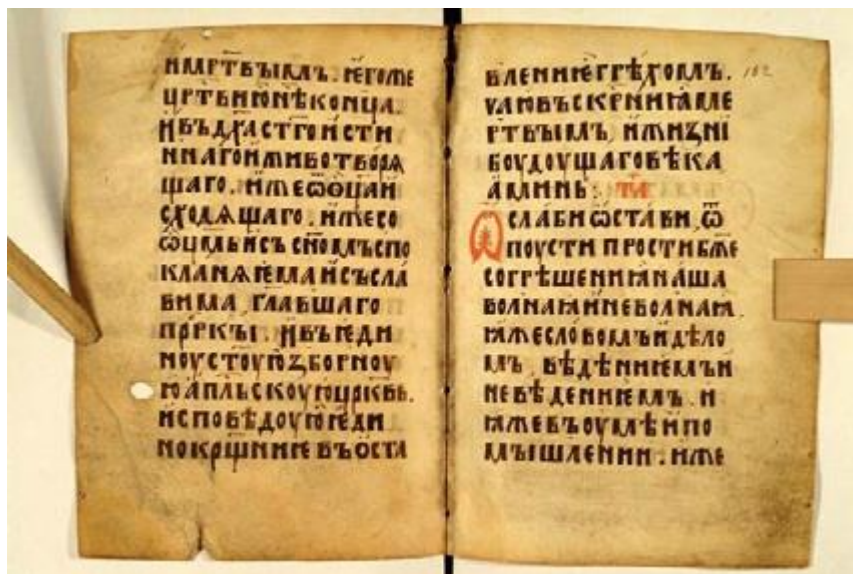 и мр҃твымъ. ѥгоже
цр҃твиѭ нѣ конца.
И въ дх҃а ст҃го истинь
ннаго и живо творѧ
щаго. иже ѿ ѡц҃а и
сходѧщаго. иже со
ѡц҃мь и съ сн҃омъ спо
кланѧѥма и съ сла
вима, глаⷡшаго
прⷪ҇ркы. И въ ѥди
ноу ст҃оую зборноу
ю ап҃льскоую цр҃квь.
исповѣдоую ѥди
но крщ҃ниѥ въ оста
влениѥ грѣхомъ.
102
чаю въскр҃ниꙗ ме
ртвымъ, и жизни
боудоущаго вѣка
аминь: та
Ослаби ѡстави, ѿ
поусти прости бж҃е
согрѣшениꙗ наша
волнаꙗ и неволнаꙗ.
ꙗже словомъ и дѣло
мъ вѣдѣниѥмъ и
невѣдениѥмъ. и
ꙗже въ оумѣ и по
мышлении. иже